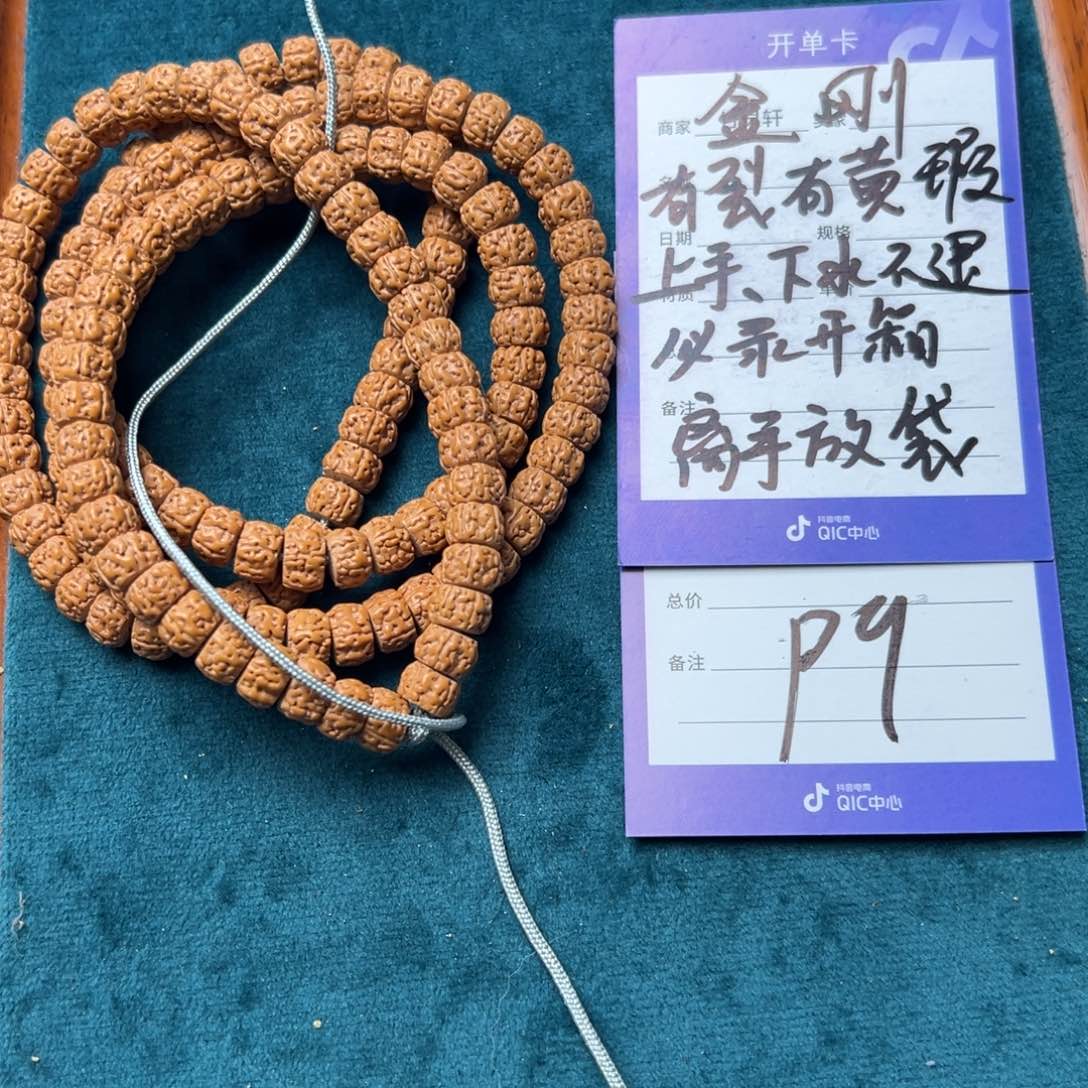 开单卡
商家 金刚 轩
有裂有黄瑕
日期 规格
上手、下水不退
必录开箱
备注
离手放袋
抖音电商
QIC中心
总价
备注 P9
抖音电商
QIC中心